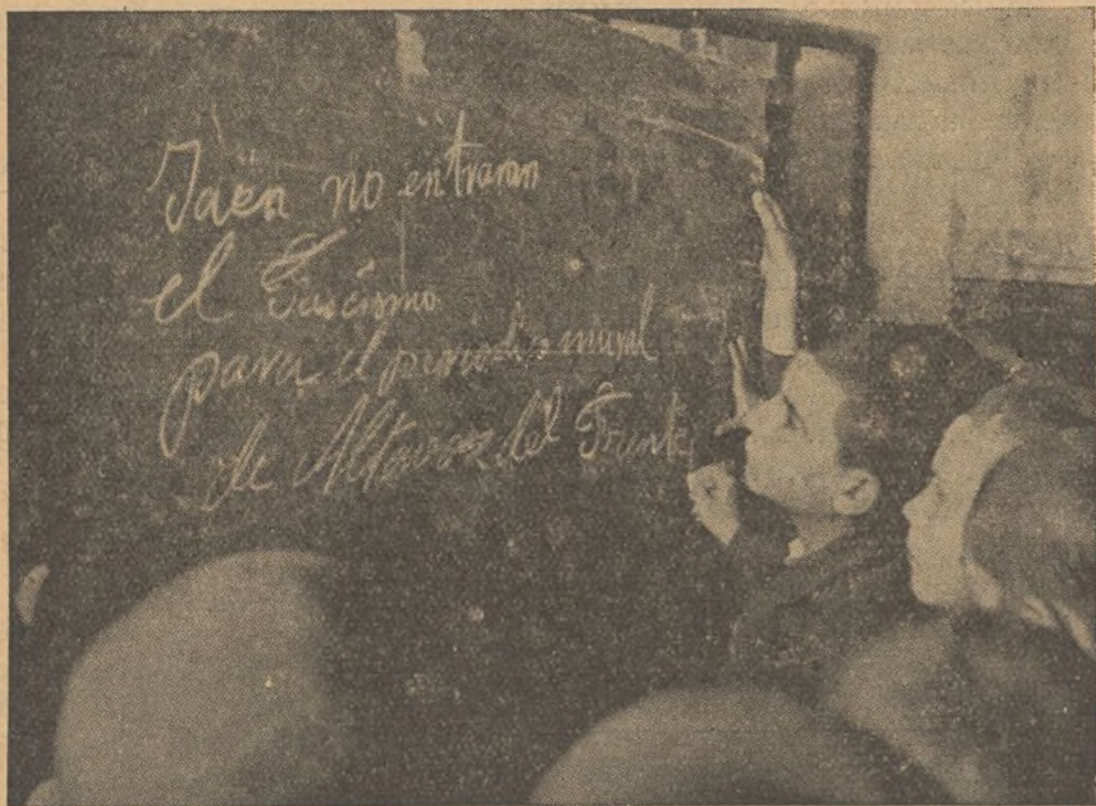 Jaen no entraran
el Fascismo
para el periodico mural
de Altavoz del Frente